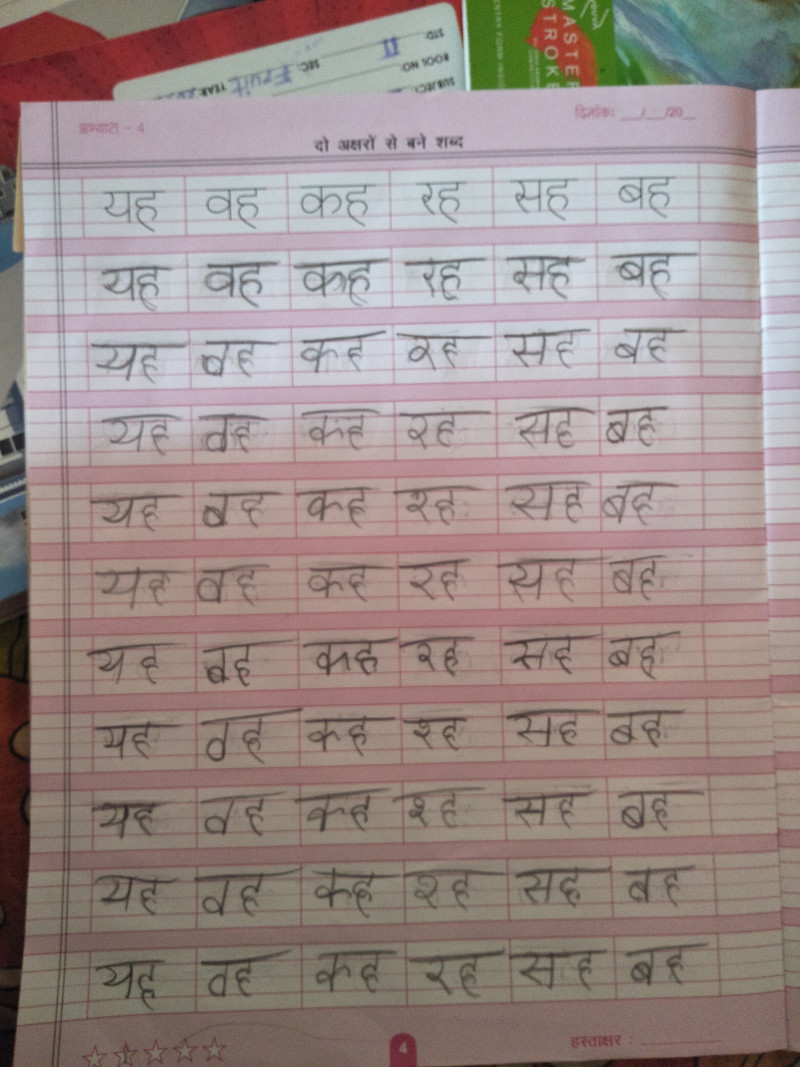 STD. II
ROOM NO.
SEC. Fruit YEAR
SUBJECT
MASTER
STROKE
अभ्यास - 4
दिनांक: __/__/20__
दो अक्षरों से बने शब्द
यह वह कह रह सह बह
यह वह कह रह सह बह
यह वह कह रह सह बह
यह वह कह रह सह बह
यह बह कह रह सह बह
यह वह कह रह सह बह
यह बह कह रह सह बह
यह वह कह रह सह बह
यह वह कह रह सह बह
यह वह कह रह सह बह
यह वह कह रह सह बह
4
हस्ताक्षर : ................